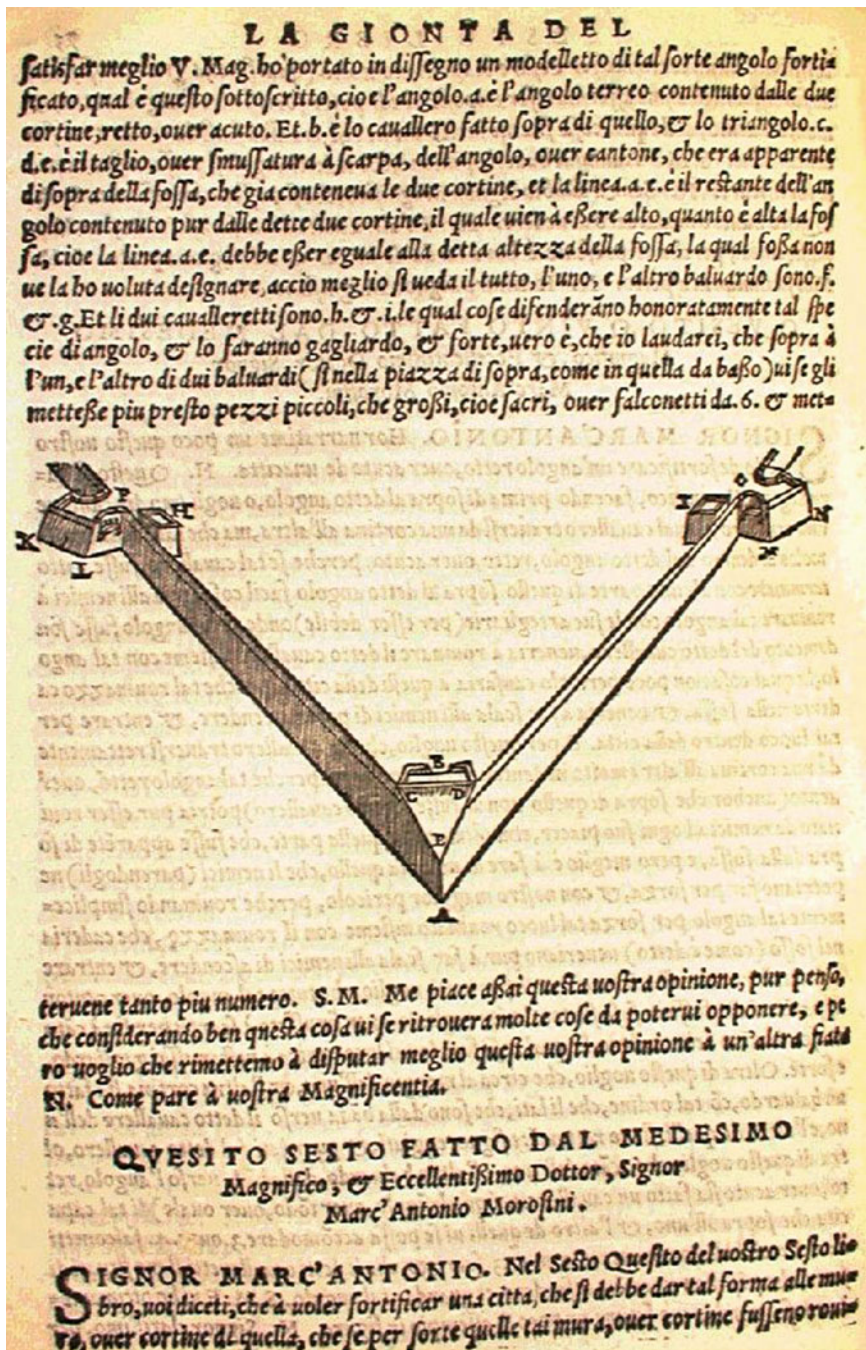 LA GIONTA DEL
ſatisfar meglio V. Mag. ho portato in diſſegno un modelletto di tal ſorte angolo fortia
ficato, qual è queſto ſottoſcritto, cioe l'angolo.a.è l'angolo terreo contenuto dalle due
cortine, retto, ouer acuto. Et.b.è lo cauallero fatto ſopra di quello, & lo triangolo.c.
d.e.è il taglio, ouer ſmuſſatura à ſcarpa, dell'angolo, ouer cantone, che era apparente
di ſopra della foſſa, che gia conteneua le due cortine, et la linea.a.e.è il reſtante dell'an
golo contenuto pur dalle dette due cortine, il quale uien à eßere alto, quanto è alta la foſ
ſa, cioe la linea.a.e. debbe eßer eguale alla detta altezza della foſſa, la qual foßa non
ue la ho uoluta deſignare, accio meglio ſi ueda il tutto, l'uno, e l'altro baluardo ſono.f.
&.g.Et li dui cauallerettì ſono.h.&.i.le qual coſe difenderāno honoratamente tal ſpe
cie di angolo, & lo faranno gagliardo, & forte, uero è, che io laudarei, che ſopra à
l'un, e l'altro di dui baluardi (ſi nella piazza di ſopra, come in quella da baßo) ui ſe gli
metteße piu preſto pezzi piccoli, che großi, cioe ſacri, ouer falconetti da.6. & met=
P H I O
K L N
B
C D
E
A
teruene tanto piu numero. S.M. Me piace aßai queſta uoſtra opinione, pur penſo,
che conſiderando ben queſta coſa ui ſe ritrouera molte coſe da poterui opponere, e pe
ro uoglio che rimettemo à diſputar meglio queſta uoſtra opinione à un'altra fiata
N. Come pare à uoſtra Magnificentia.
QVESITO SESTO FATTO DAL MEDESIMO
Magnifico, & Eccellentißimo Dottor, Signor
Marc'Antonio Moroſini.
SIGNOR MARC'ANTONIO. Nel Sesto Queſito del uoſtro Seſto li=
bro, uoi diceti, che à uoler fortificar una citta, che ſi debbe dar tal forma alle mu=
ra, ouer cortine di quella, che ſe per ſorte quelle tai mura, ouer cortine fuſſeno roui=